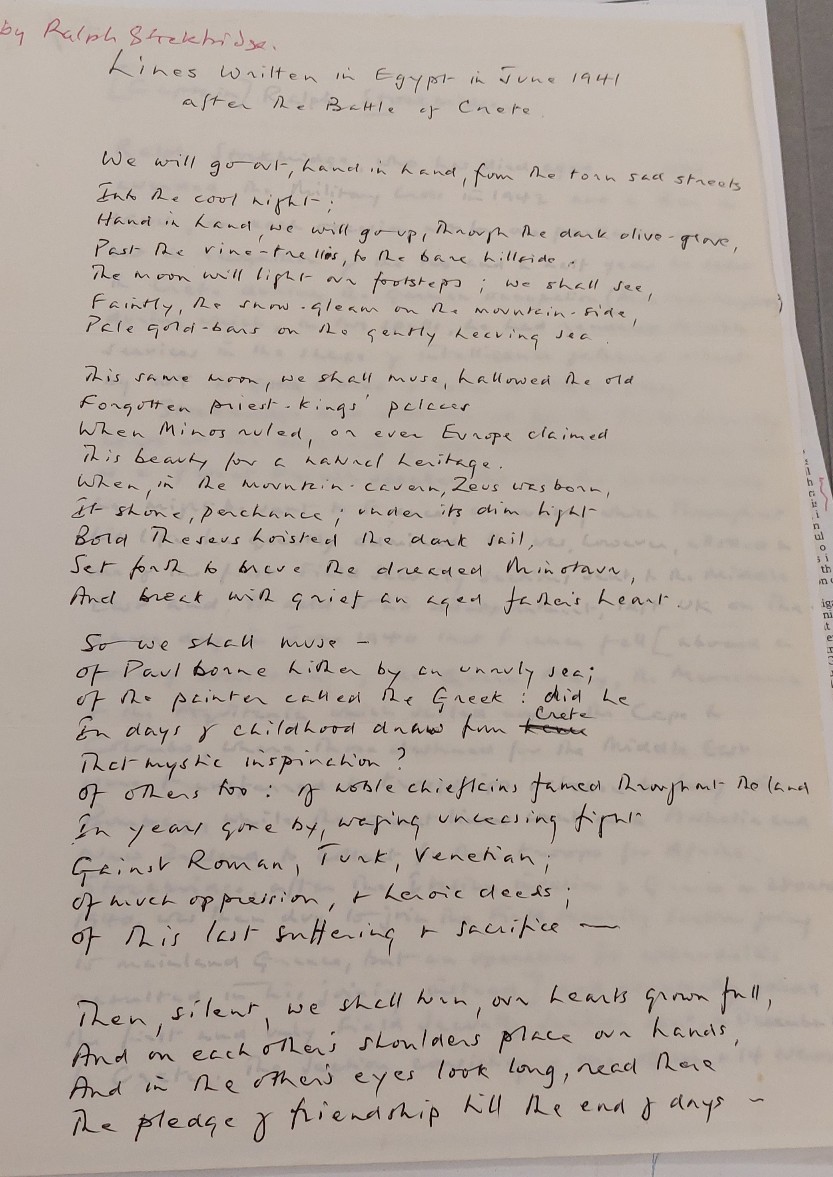 by Ralph Stockbridge.
Lines written in Egypt in June 1941
after the Battle of Crete.
We will go out, hand in hand, from the torn sad streets
Into the cool night;
Hand in hand, we will go up, through the dark olive-grove,
Past the vine-trellis, to the bare hillside.
The moon will light our footsteps; we shall see,
Faintly, the snow-gleam on the mountain-side,
Pale gold-bars on the gently heaving sea.
This same moon, we shall muse, hallowed the old
Forgotten priest-kings' palaces
When Minos ruled, or ever Europe claimed
This beauty for a natural heritage.
When, in the mountain-cavern, Zeus was born,
It shone, perchance; under its dim light
Bold Theseus hoisted the dark sail,
Set forth to brave the dreaded Minotaur,
And break with grief an aged father's heart.
So we shall muse -
of Paul borne hither by an unruly sea;
of the painter called the Greek: did he
In days of childhood draw from Crete
That mystic inspiration?
Of others too: of noble chieftains famed throughout the land
In years gone by, waging unceasing fight
Gainst Roman, Turk, Venetian;
of much oppression, & heroic deeds;
of this last suffering & sacrifice —
Then, silent, we shall turn, our hearts grown full,
And on each other's shoulders place our hands,
And in the other's eyes look long, read there
The pledge of friendship till the end of days -